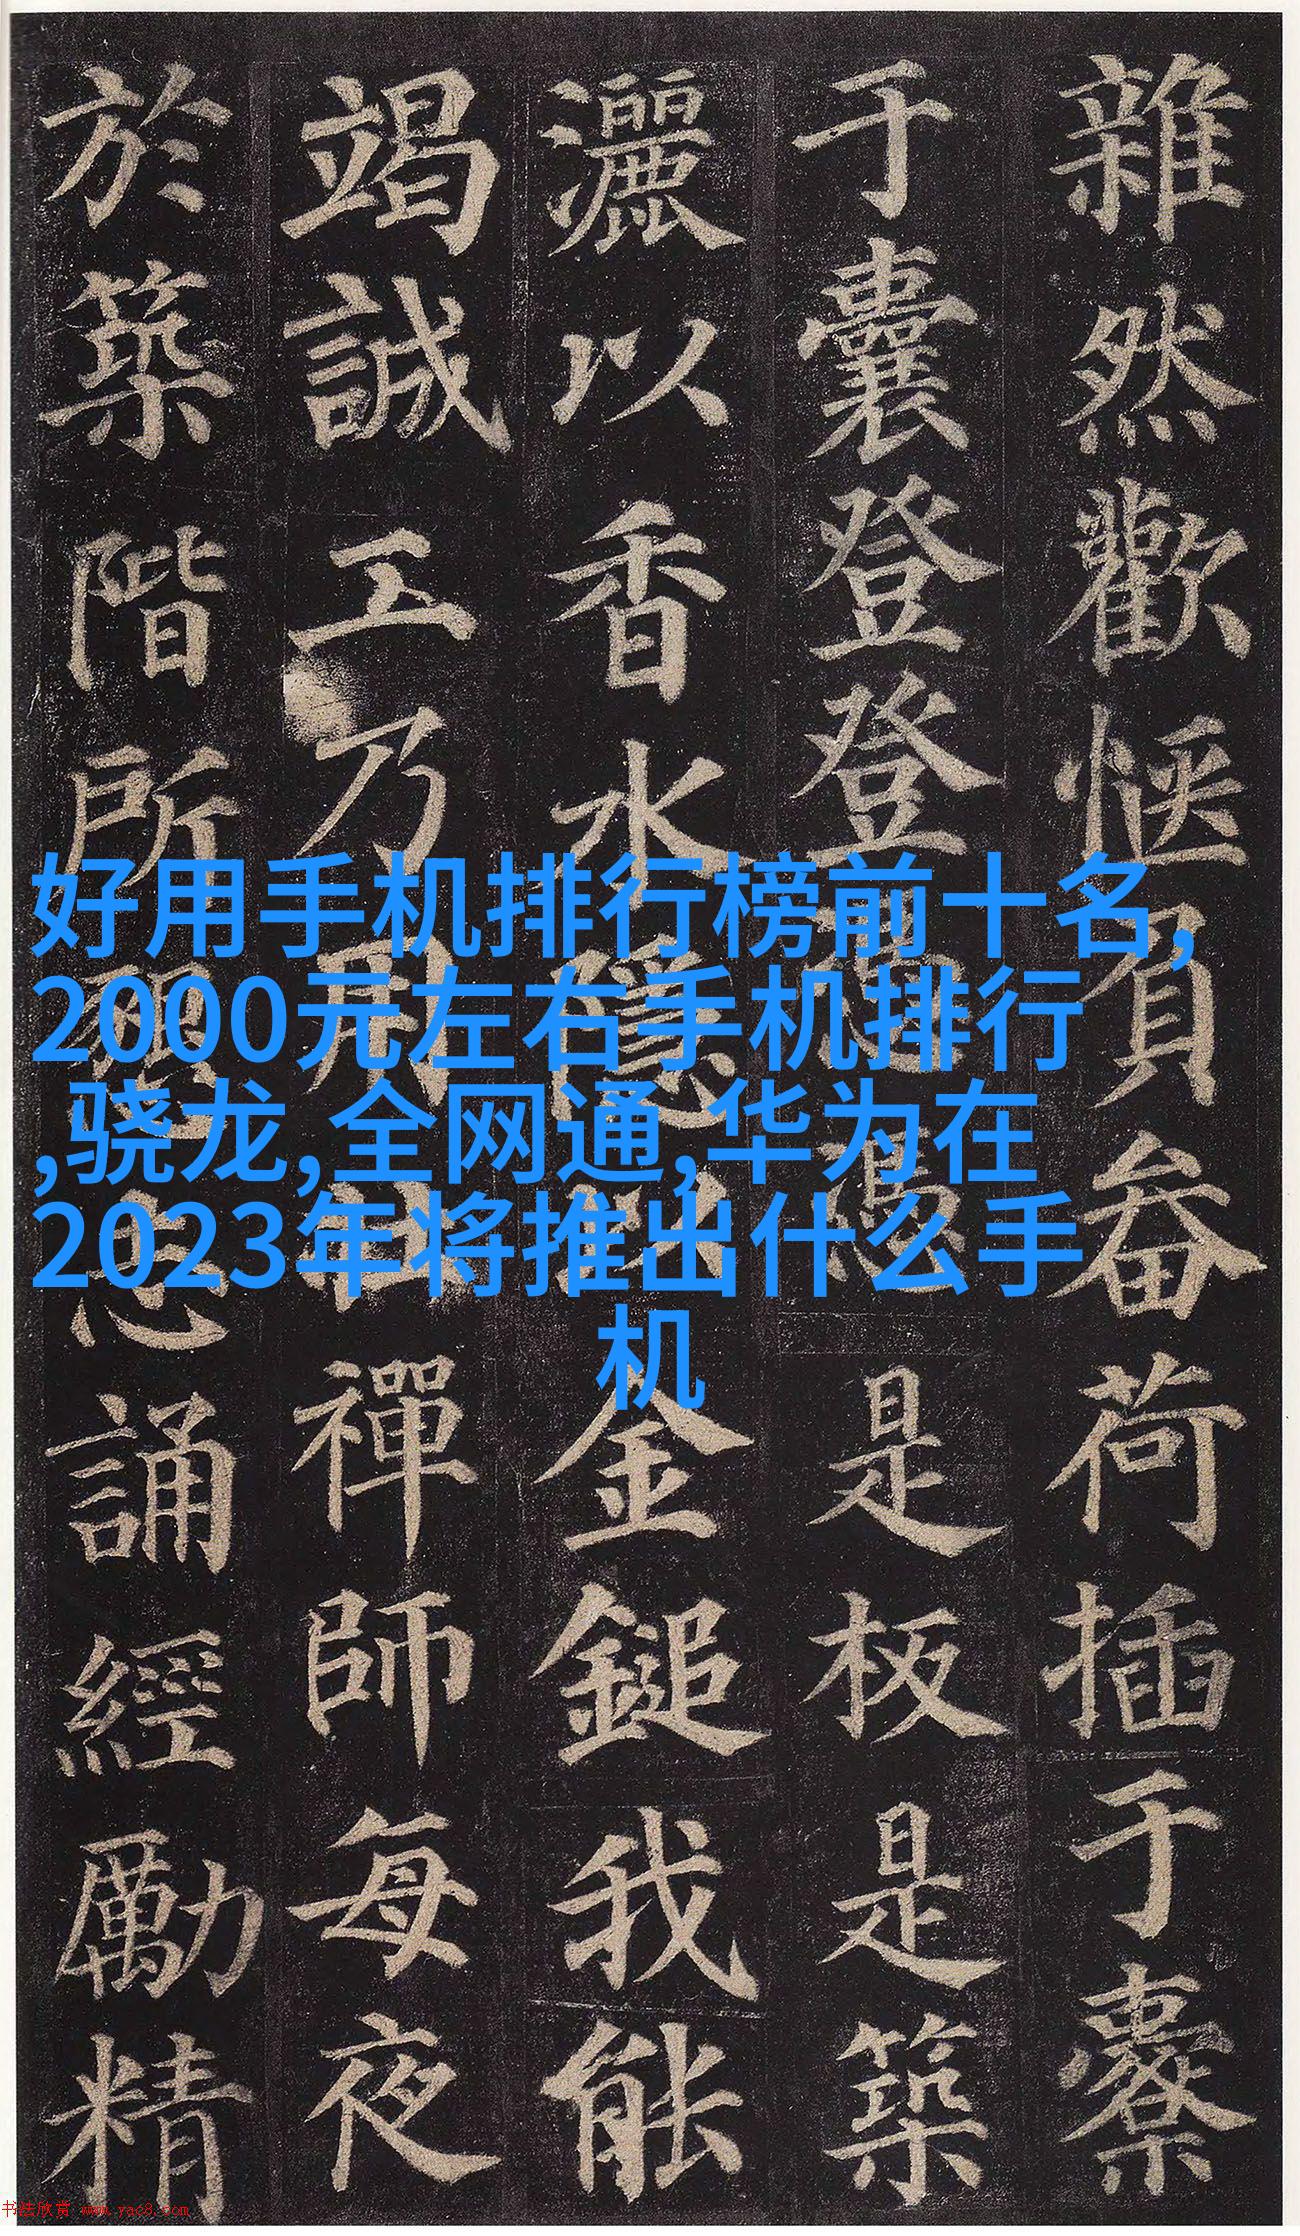 雜然歡愜負畚荷插于橐
于囊登登憑憑是板是築
灑以香水隱以金鎚我能
竭誠工乃用壯禪師每夜
於築階所懇志誦經勵精
好用手机排行榜前十名,
2000元左右手机排行
,骁龙,全网通,华为在
2023年将推出什么手
机
书法欣赏 www.yac8.com